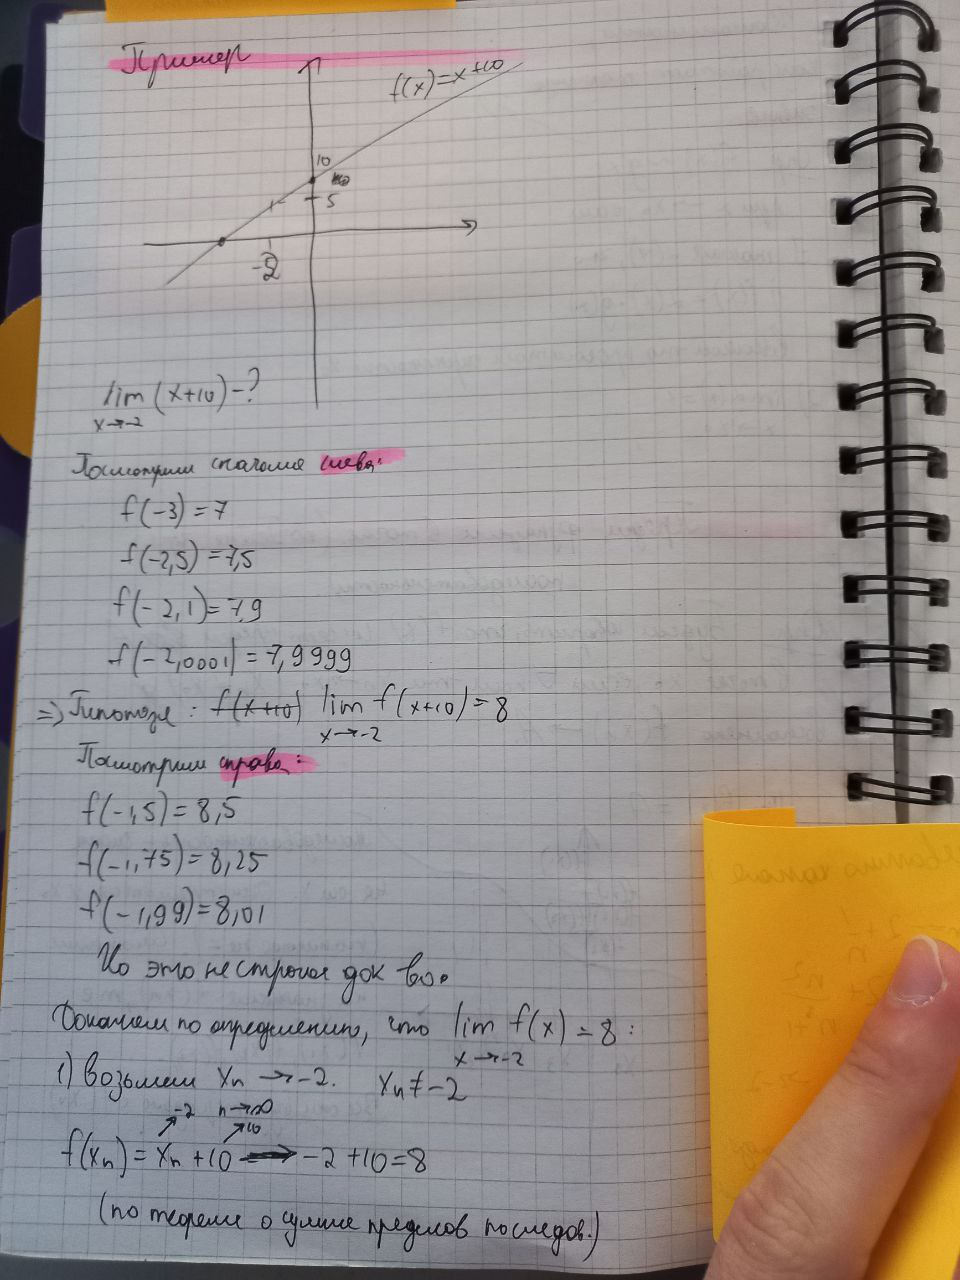 Пример
f(x)=x+10
10
5
-2
lim (x+10) - ?
x→-2
Посмотрим сначала слева:
f(-3) = 7
f(-2,5) = 7,5
f(-2,1) = 7,9
f(-2,0001) = 7,9999
=> Гипотеза: f(x+10) lim f(x+10) = 8
x→-2
Посмотрим справа:
f(-1,5) = 8,5
f(-1,75) = 8,25
f(-1,99) = 8,01
Но это не строгое док во.
Докажем по определению, что lim f(x) = 8 :
x→-2
1) Возьмем xn → -2. xn ≠ -2
-2 n→∞
10
f(xn) = xn + 10 → -2 + 10 = 8
(по теореме о сумме пределов последов.)